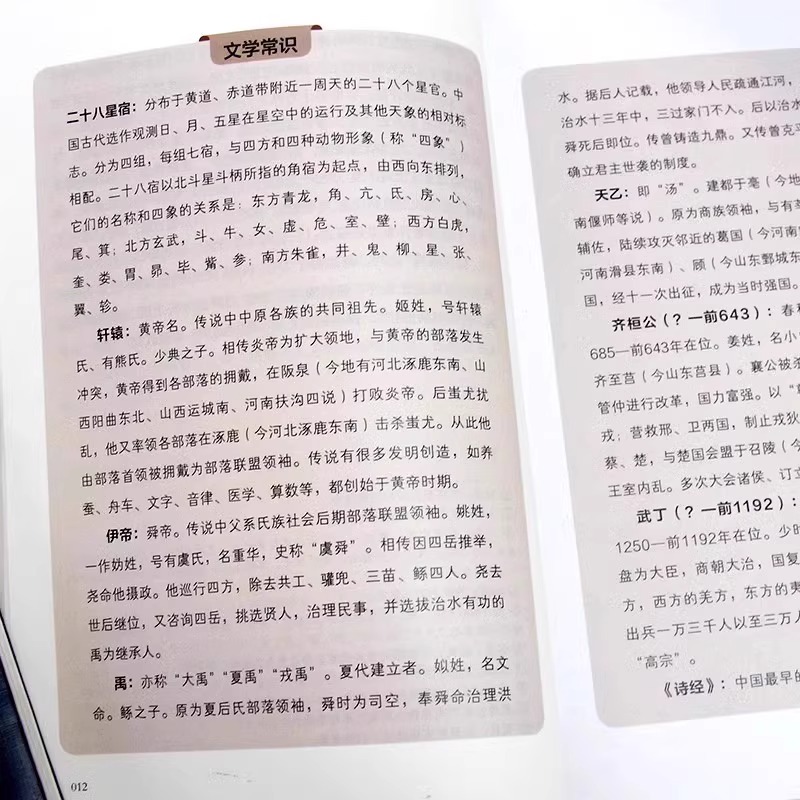 文学常识
二十八星宿：分布于黄道、赤道带附近一周天的二十八个星官。中
国古代选作观测日、月、五星在星空中的运行及其他天象的相对标
志。分为四组，每组七宿，与四方和四种动物形象（称“四象”）
相配。二十八宿以北斗星斗柄所指的角宿为起点，由西向东排列，
它们的名称和四象的关系是：东方青龙，角、亢、氐、房、心、
尾、箕；北方玄武，斗、牛、女、虚、危、室、壁；西方白虎，
奎、娄、胃、昴、毕、觜、参；南方朱雀，井、鬼、柳、星、张、
翼、轸。
轩辕：黄帝名。传说中中原各族的共同祖先。姬姓，号轩辕
氏、有熊氏。少典之子。相传炎帝为扩大领地，与黄帝的部落发生
冲突，黄帝得到各部落的拥戴，在阪泉（今地有河北涿鹿东南、山
西阳曲东北、山西运城南、河南扶沟四说）打败炎帝。后蚩尤扰
乱，他又率领各部落在涿鹿（今河北涿鹿东南）击杀蚩尤。从此他
由部落首领被拥戴为部落联盟领袖。传说有很多发明创造，如养
蚕、舟车、文字、音律、医学、算数等，都创始于黄帝时期。
伊帝：舜帝。传说中父系氏族社会后期部落联盟领袖。姚姓，
一作妫姓，号有虞氏，名重华，史称“虞舜”。相传因四岳推举，
尧命他摄政。他巡行四方，除去共工、驩兜、三苗、鲧四人。尧去
世后继位，又咨询四岳，挑选贤人，治理民事，并选拔治水有功的
禹为继承人。
禹：亦称“大禹”“夏禹”“戎禹”。夏代建立者。姒姓，名文
命。鲧之子。原为夏后氏部落领袖，舜时为司空，奉舜命治理洪
012
水。据后人记载，他领导人民疏通江河，
治水十三年中，三过家门不入。后以治水
舜死后即位。传曾铸造九鼎。又传曾克平
确立君主世袭的制度。
天乙：即“汤”。建都于亳（今地
南偃师等说）。原为商族领袖，与有莘
辅佐，陆续攻灭邻近的葛国（今河南
河南滑县东南）、顾（今山东鄄城东
国，经十一次出征，成为当时强国。
齐桓公（？—前643）：春
685—前643年在位。姜姓，名小
齐至莒（今山东莒县）。襄公被杀
管仲进行改革，国力富强。以“
戎；营救邢、卫两国，制止戎狄
蔡、楚，与楚国会盟于召陵（今
王室内乱。多次大会诸侯、订立
武丁（？—前1192）：
1250—前1192年在位。少时
盘为大臣，商朝大治，国复
方，西方的羌方，东方的夷
出兵一万三千人以至三万人
“高宗”。
《诗经》：中国最早的